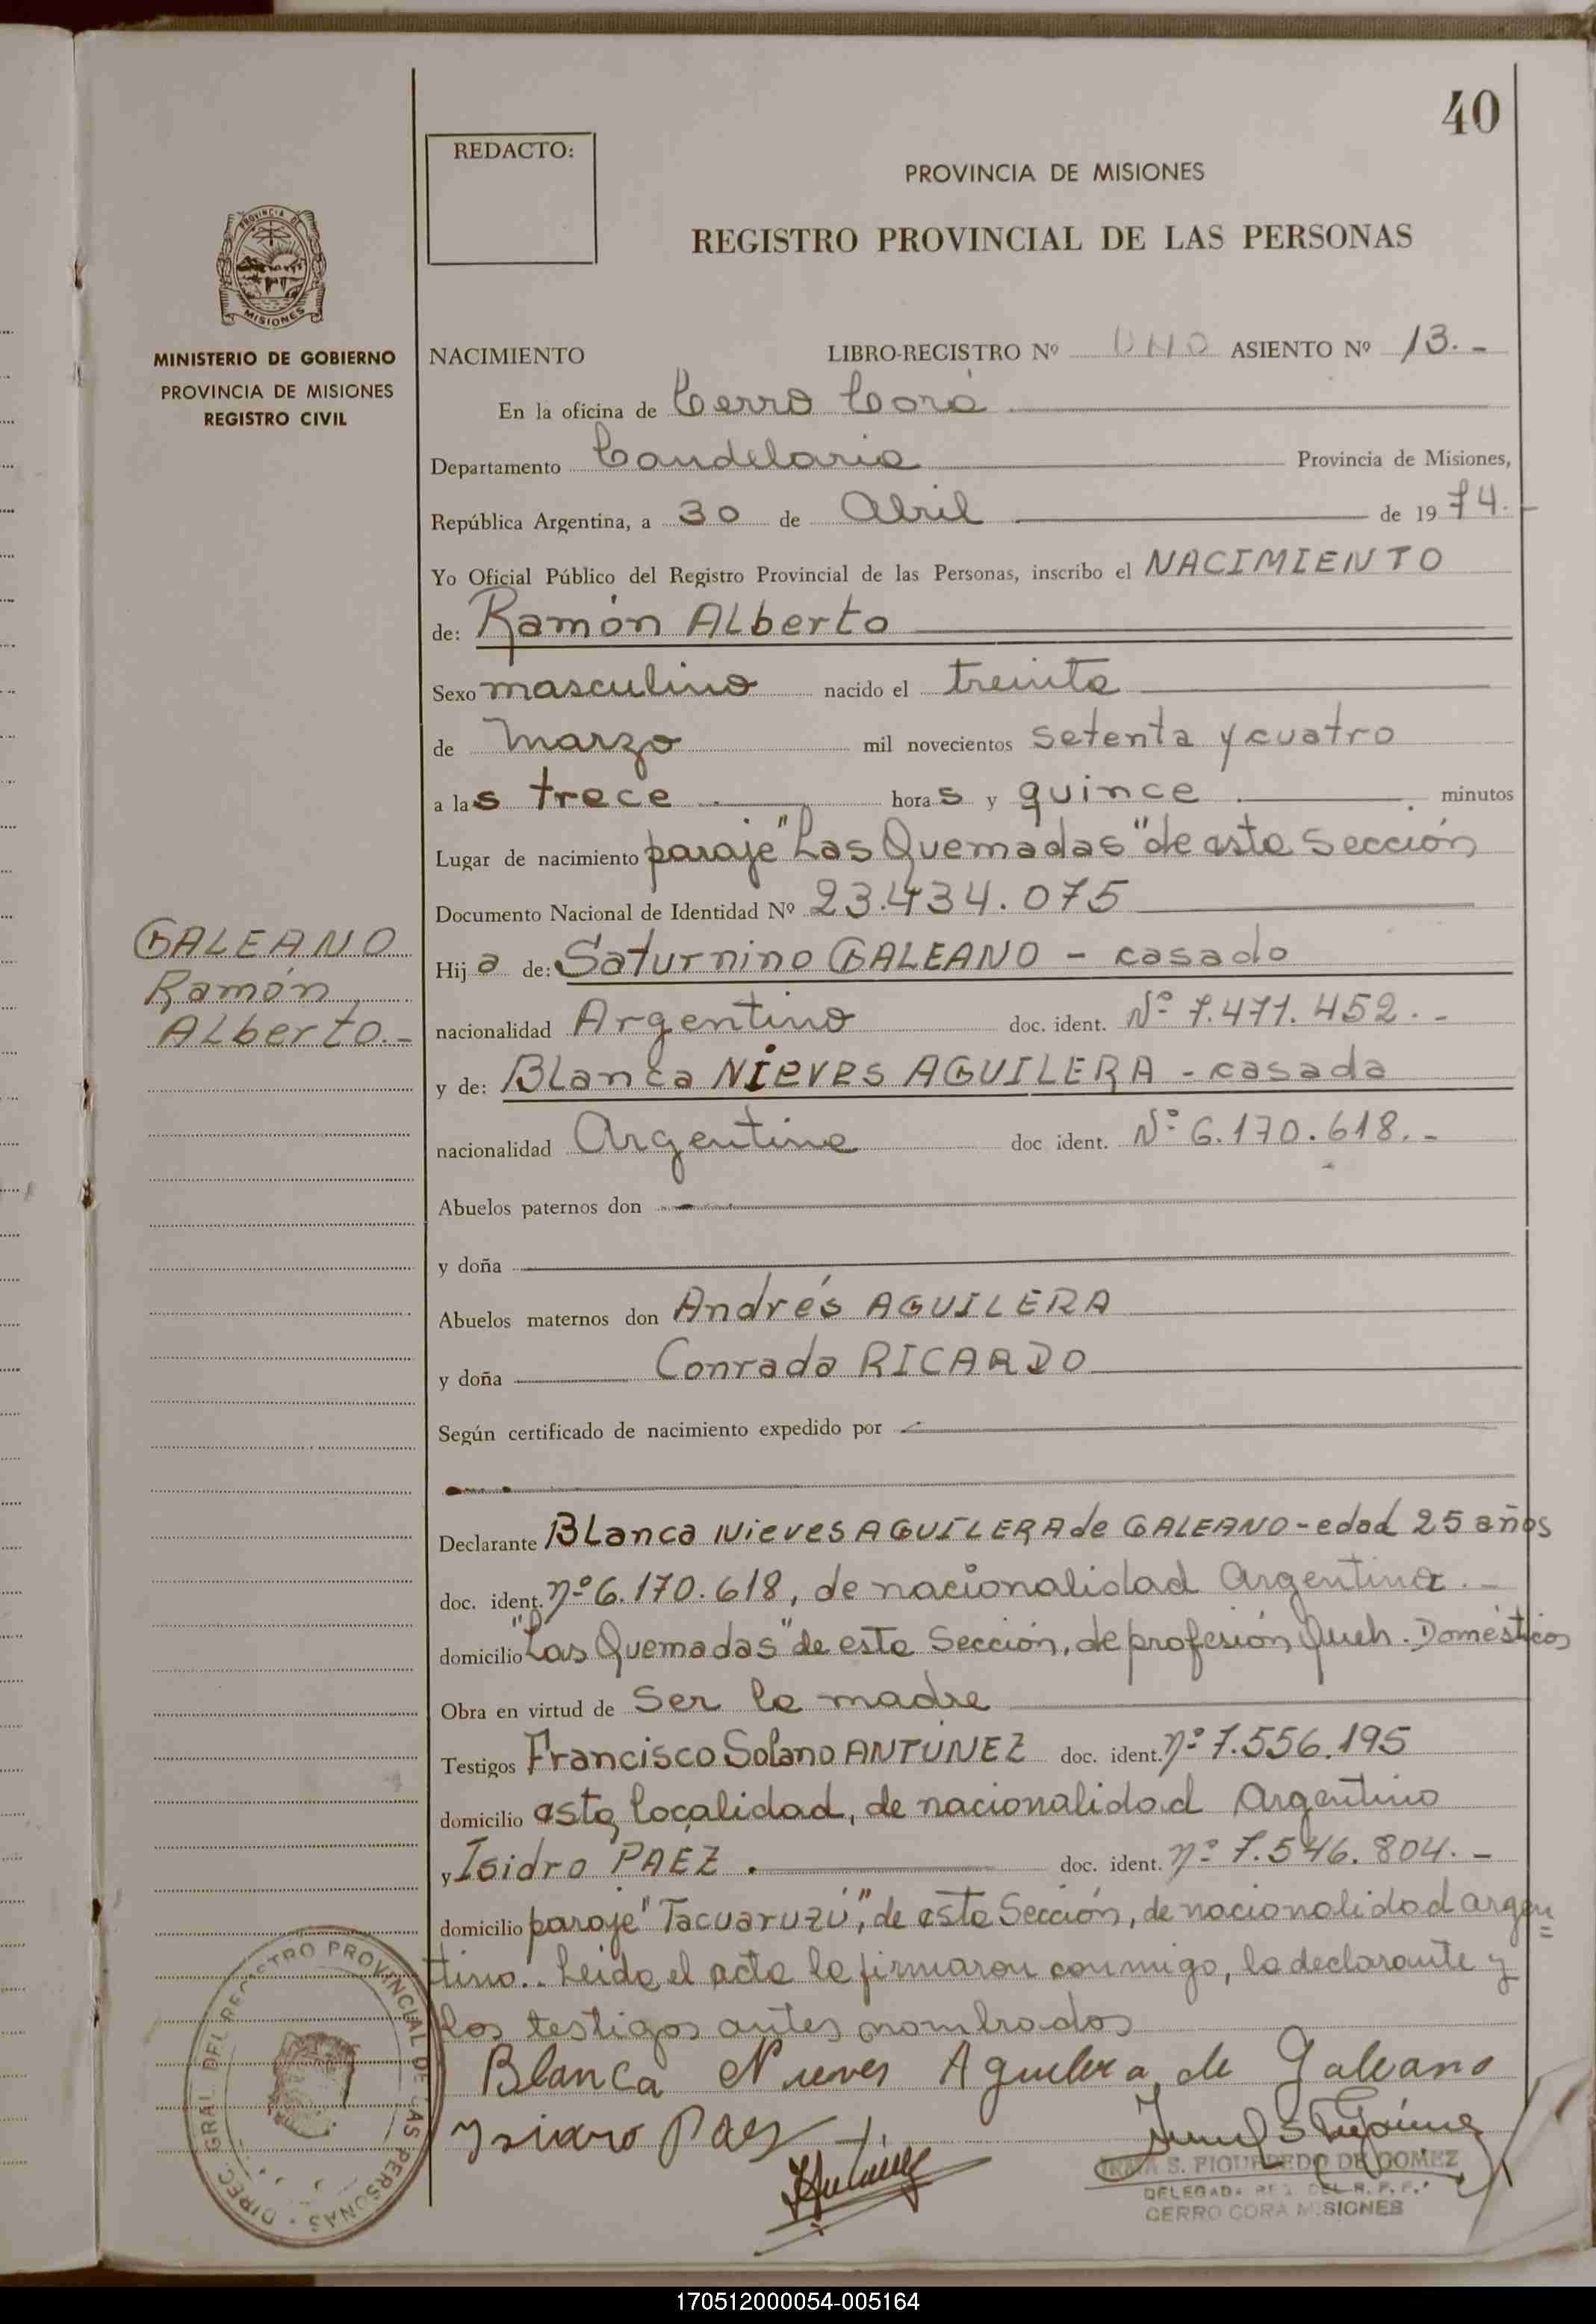 40
REDACTO:
PROVINCIA DE MISIONES
REGISTRO PROVINCIAL DE LAS PERSONAS
PROVINCIA DE
MISIONES
MINISTERIO DE GOBIERNO
PROVINCIA DE MISIONES
REGISTRO CIVIL
NACIMIENTO LIBRO-REGISTRO Nº UNO ASIENTO Nº 13.-
En la oficina de Cerro Corá
Departamento Candelaria Provincia de Misiones,
República Argentina, a 30 de Abril de 1974.-
Yo Oficial Público del Registro Provincial de las Personas, inscribo el NACIMIENTO
de: Ramón ALberto
Sexo masculino nacido el treinta
de marzo mil novecientos setenta y cuatro
a las trece horas y quince minutos
Lugar de nacimiento paraje "Las Quemadas" de esta Sección
Documento Nacional de Identidad Nº 23.434.075
GALEANO
Ramón
ALberto.-
Hij a de: Saturnino GALEANO - casado
nacionalidad Argentino doc. ident. Nº 7.471.452.-
y de: BLanca NIEVES AGUILERA - casada
nacionalidad Argentina doc ident. Nº 6.170.618.-
Abuelos paternos don
y doña
Abuelos maternos don Andrés AGUILERA
y doña Conrada RICARDO
Según certificado de nacimiento expedido por
Declarante BLanca Nieves AGUILERA de GALEANO - edad 25 años
doc. ident. nº 6.170.618, de nacionalidad Argentina.-
domicilio "Las Quemadas" de esta Sección, de profesión Queh. Domésticos
Obra en virtud de Ser la madre
Testigos Francisco Solano ANTÚNEZ doc. ident. nº 7.556.195
domicilio esta localidad, de nacionalidad Argentino
y Isidro PAÉZ. doc. ident. nº 7.546.804.-
domicilio paraje "Tacuaruzú", de esta Sección, de nacionalidad argen=
tino.. Leida el acta la firmaron conmigo, la declarante y
los testigos antes nombrados
Blanca Nieves Aguilera de Galeano
Ysidro Paez
DIREC. GRAL. DEL REGISTRO PROVINCIAL DE LAS PERSONAS
IRMA S. FIGUEREDO DE GOMEZ
DELEGADA
CERRO CORA MISIONES
170512000054-005164